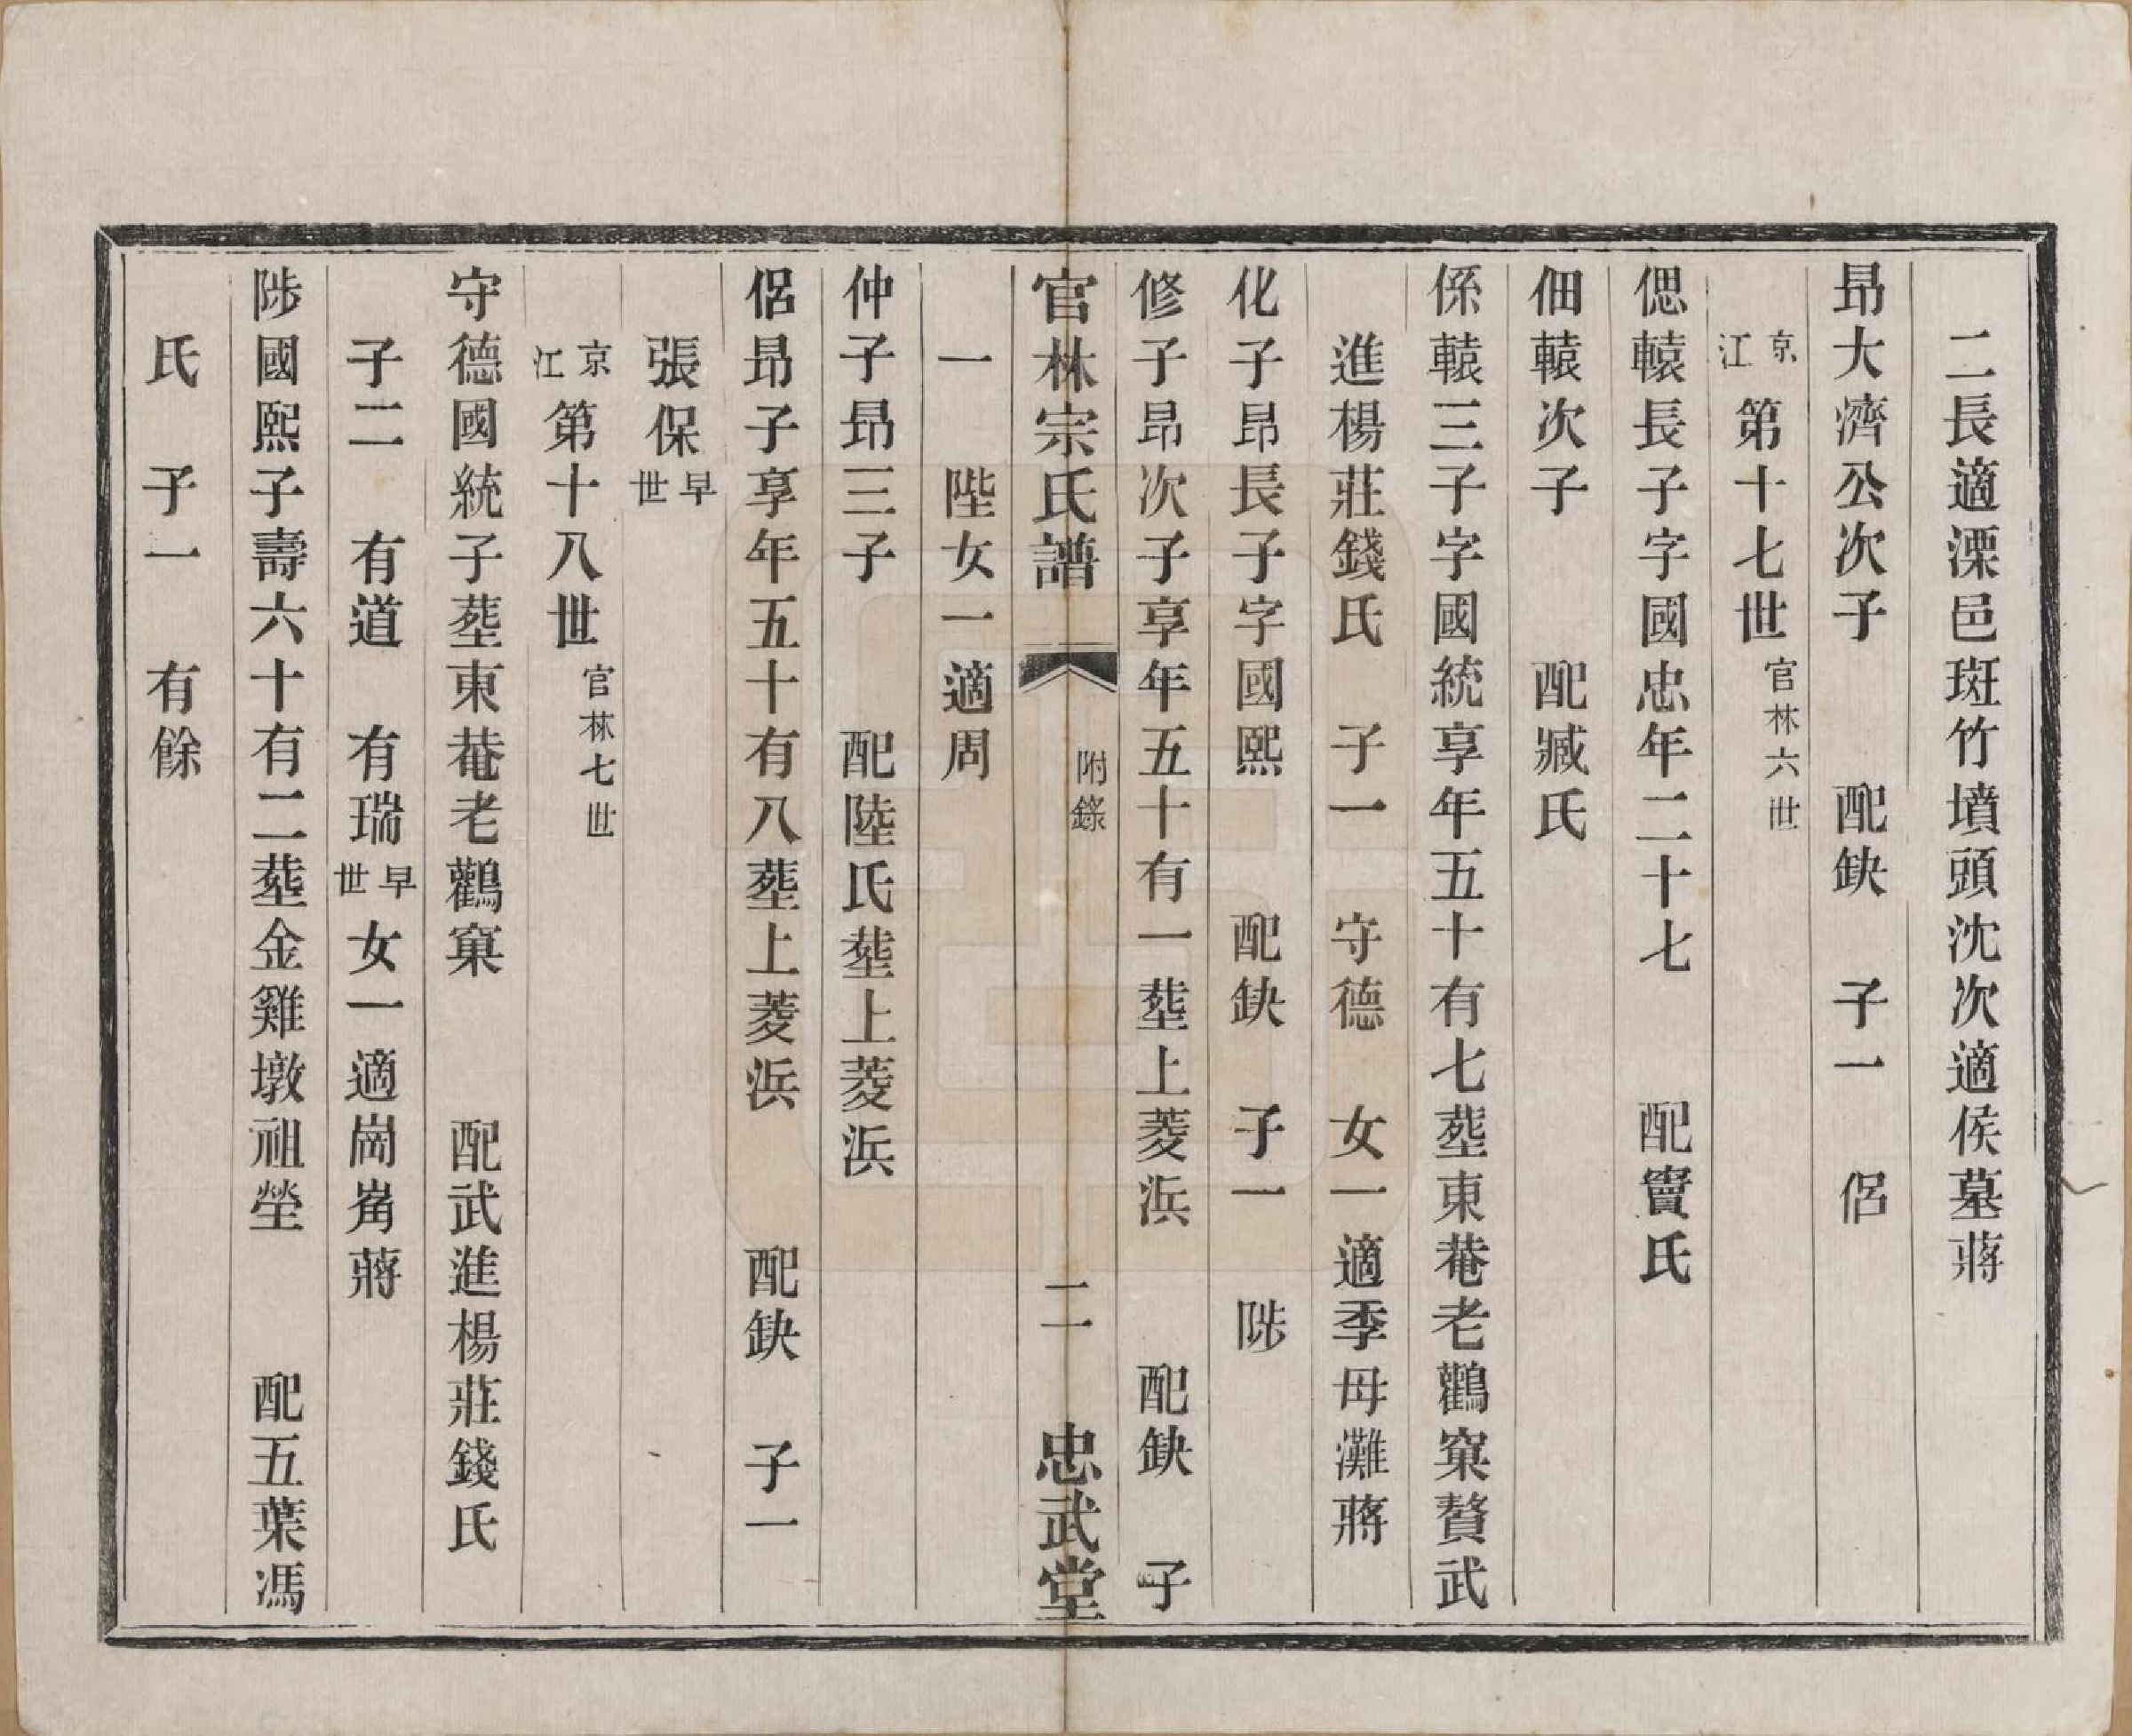 二長適溧邑斑竹墳頭沈次適侯墓蔣
昻大濟公次子　配缺　子一　侶
京江第十七世官林六世
偲轅長子字國忠年二十七　配竇氏
佃轅次子　配臧氏
係轅三子字國統享年五十有七塟東菴老鸛窠贅武
進楊莊錢氏　子一　守德　女一適季母灘蔣
化子昻長子字國熙　配缺　子一　陟
修子昻次子享年五十有一塟上菱浜　配缺　子
官林宗氏譜　附錄　二　忠武堂
一　陛女一適周
仲子昻三子　配陸氏塟上菱浜
侶昻子享年五十有八塟上菱浜　配缺　子一
張保早世
京江第十八世官林七世
守德國統子塟東菴老鸛窠　配武進楊莊錢氏
子二　有道　有瑞早世女一適崗角蔣
陟國熙子壽六十有二塟金雞墩祖塋　配五葉馮
氏　子一　有餘